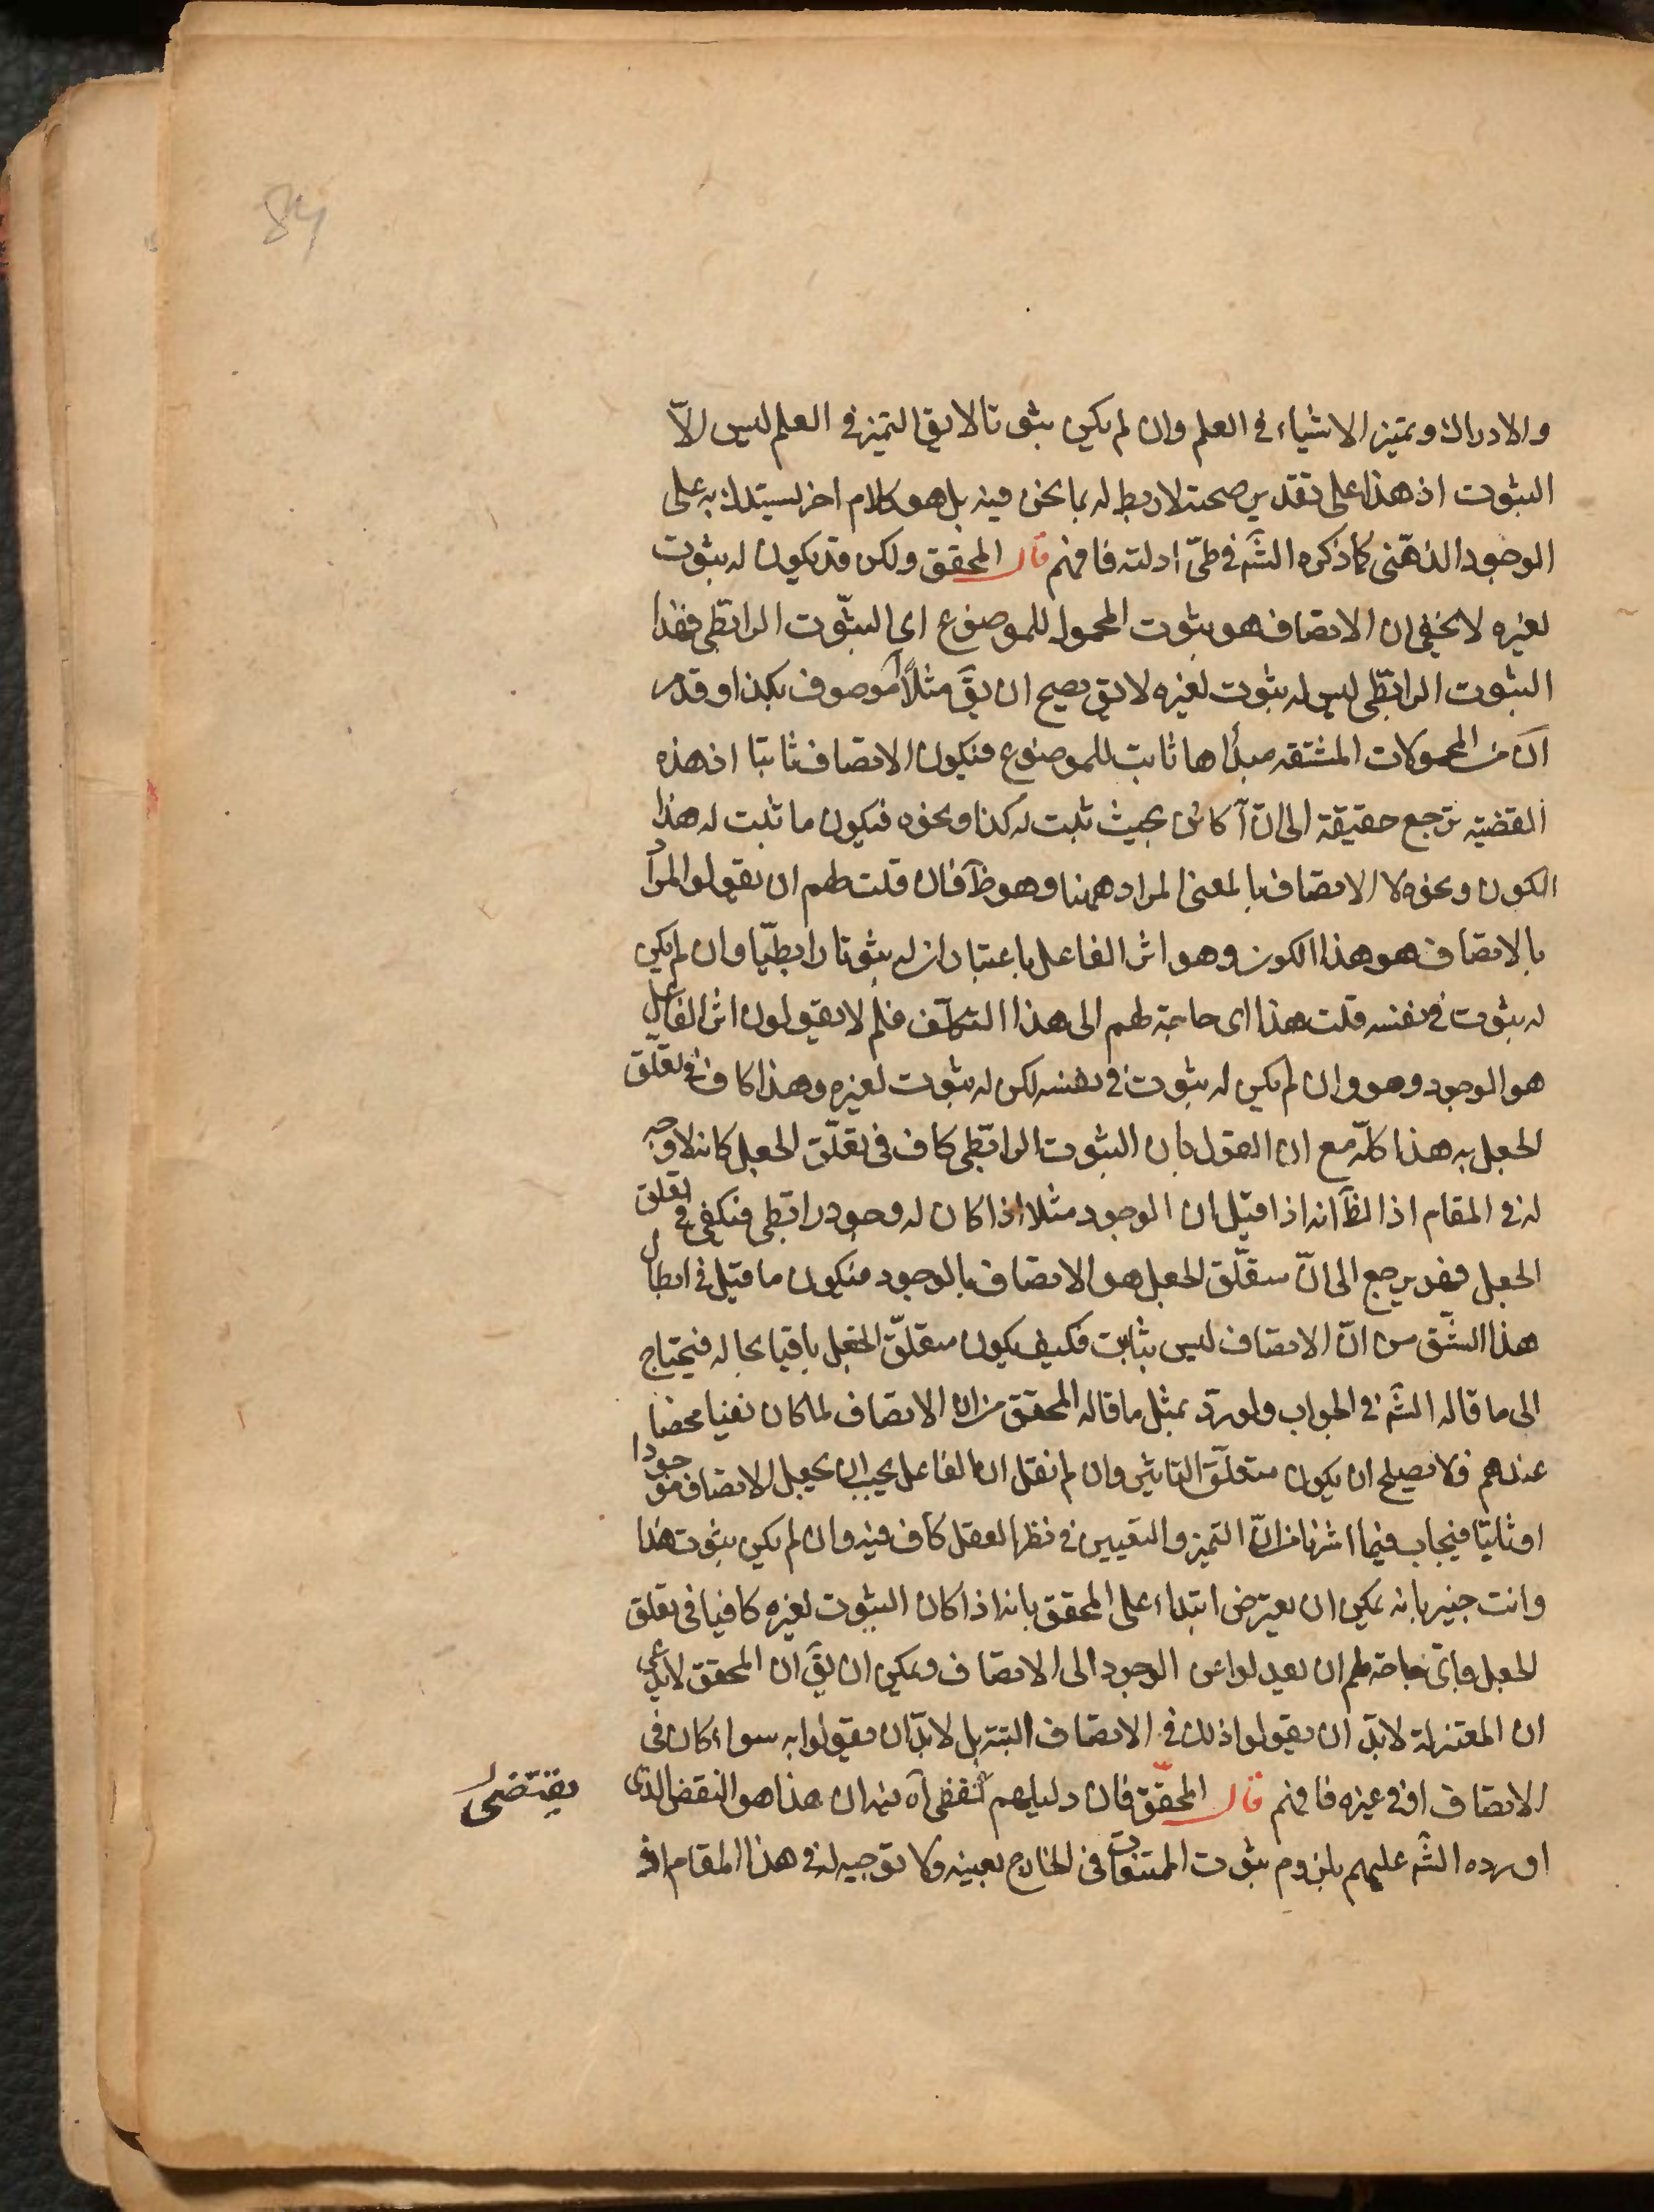 84
والادراك وتميز الاشياء في العلم وان لم يكن ثبوتا لا يق التميز في العلم ليس الّا
الثبوت اذ هذا على تقدير صحته لا ربط له بما نحن فيه بل هو كلام اخر يستدل به على
الوجود الذهنى كما ذكره الشَّ في طىّ ادلته فافهم قال المحقق ولكن قد يكون له ثبوت
لغيره لا يخفى ان الاتصاف هو ثبوت المحمول للموضوع اى الثبوت الرابطى فهذا
الثبوت الرابطى ليس له ثبوت لغيره لا يق يصح ان يقَ مثلا آ موصوف بكذا وقد مر
انّ من المحمولات المشتقه مبدأها ثابت للموضوع فيكون الاتصاف ثابتا اذ هذه
القضيه ترجع حقيقة الى انّ آ كائن بحيث ثبت له كذا ونحوه فيكون ما ثبت له هذا
الكون ونحوه لا الاتصاف بالمعنى المراد ههنا وهو ظَ فان قلت لهم ان يقولوا المراد
بالاتصاف هو هذا الكون وهو اثر الفاعل باعتبار ان له ثبوتا رابطيّا وان لم يكن
له ثبوت في نفسه قلت هذا اى حاجة لهم الى هذا التكلّف فلم لا يقولون اثر الفاعل
هو الوجود وهو وان لم يكن له ثبوت في نفسه لكن له ثبوت لغيره وهذا كاف في تعلّق
الجعل به هذا كلّه مع ان القول بان الثبوت الرابطى كاف في تعلّق الجعل كانه لا وجه
له في المقام اذ الظَ انه اذا قيل ان الوجود مثلا اذا كان له وجود رابطى فيكفى في تعلق
الجعل فقد يرجع الى انّ متعلّق الجعل هو الاتصاف بالوجود فيكون ما قيل في ابطال
هذا الشّق من انّ الاتصاف ليس بثابت فكيف يكون متعلّق الجعل باقيا بحاله فيحتاج
الى ما قاله الشَّ في الجواب ولو ردّ بمثل ما قاله المحقق من ان الاتصاف لما كان نفيا محضا
عندهم فلا يصلح ان يكون متعلّق التاثير وان لم نقل ان الفاعل يجب ان يجعل الاتصاف موجودا
او ثابتا فيجاب فيما اشرنا من انّ التميز والتعيين في نظر العقل كاف فيه وان لم يكن ثبوت هذا
وانت خبير بانه يمكن ان يعترض ابتداء على المحقق بانه اذا كان الثبوت لغيره كافيا في تعلق
الجعل فاىّ حاجة لهم ان يعدلوا عن الوجود الى الاتصاف ويمكن ان يقَ ان المحقق لا يدعى
ان المعتزلة لا بدّ ان يقولوا ذلك في الاتصاف البتة بل لا بدّ ان يقولوا به سواء كان في
الاتصاف او في غيره فافهم قال المحقّق فان دليلهم لنقضى آه فيه ان هذا هو النقض الذى
اورده الشَّ عليهم بلزوم ثبوت الممتنعات في الخارج بعينه ولا توجيه له في هذا المقام اذ
يقتضى